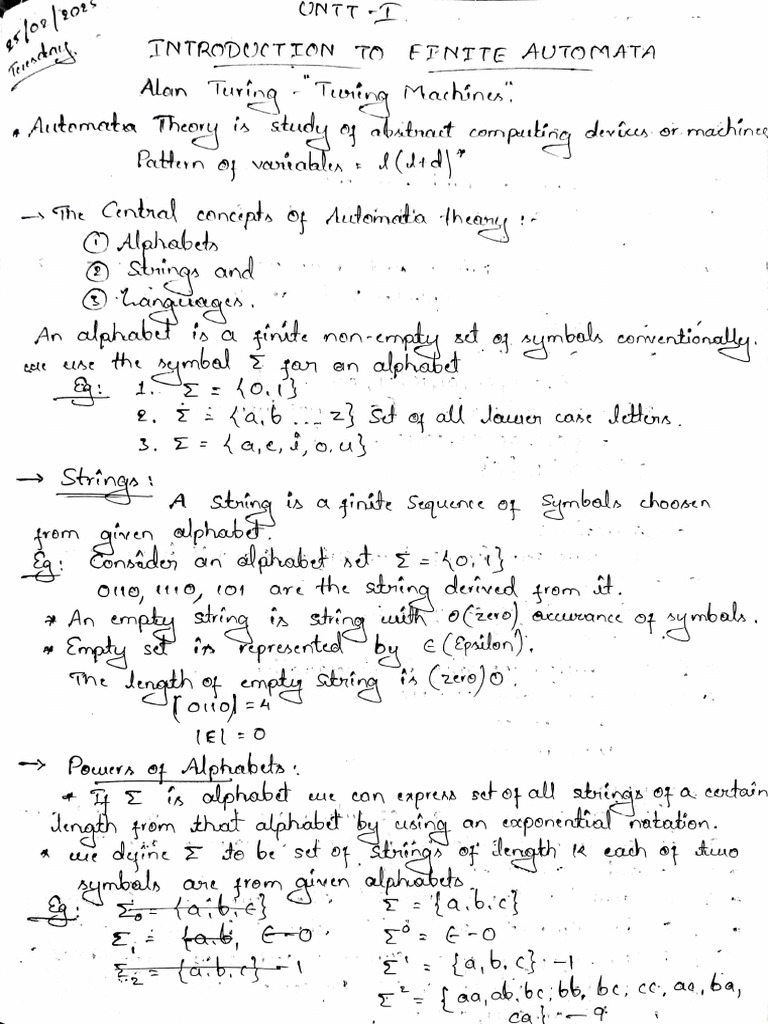 25/02/2025
Tuesday.
UNIT - I
INTRODUCTION TO FINITE AUTOMATA
Alan Turing - "Turing Machines".
* Automata Theory is study of abstract computing devices or machines
Pattern of variables = l(l+d)*
→ The Central concepts of Automata theory :-
① Alphabets
② Strings and
③ Languages.
An alphabet is a finite non-empty set of symbols conventionally.
we use the symbol Σ for an alphabet
Eg: 1. Σ = {0,1}
2. Σ = {a,b ... z} Set of all lower case letters.
3. Σ = {a,e,i,o,u}
→ Strings:
A string is a finite sequence of symbols choosen
from given alphabet.
Eg: Consider an alphabet set Σ = {0,1}
0110, 1110, 101 are the string derived from it.
* An empty string is string with 0(zero) accurance of symbols.
* Empty set is represented by ∈ (Epsilon).
The length of empty string is (zero) 0.
|0110| = 4
|∈| = 0
→ Powers of Alphabets:
* If Σ is alphabet we can express set of all strings of a certain
length from that alphabet by using an exponential notation.
* we define Σ to be set of strings of length K each of two
symbols are from given alphabets
Eg: Σ0 = {a,b,∈} Σ = {a,b,c}
Σ1 = {a,b, ∈ - 0 Σ⁰ = ∈ - 0
Σ2 = {a,b,c} - 1 Σ¹ = {a,b,c} - 1
Σ² = {aa, ab, bc, bb, bc, cc, ac, ba,
ca} - 9